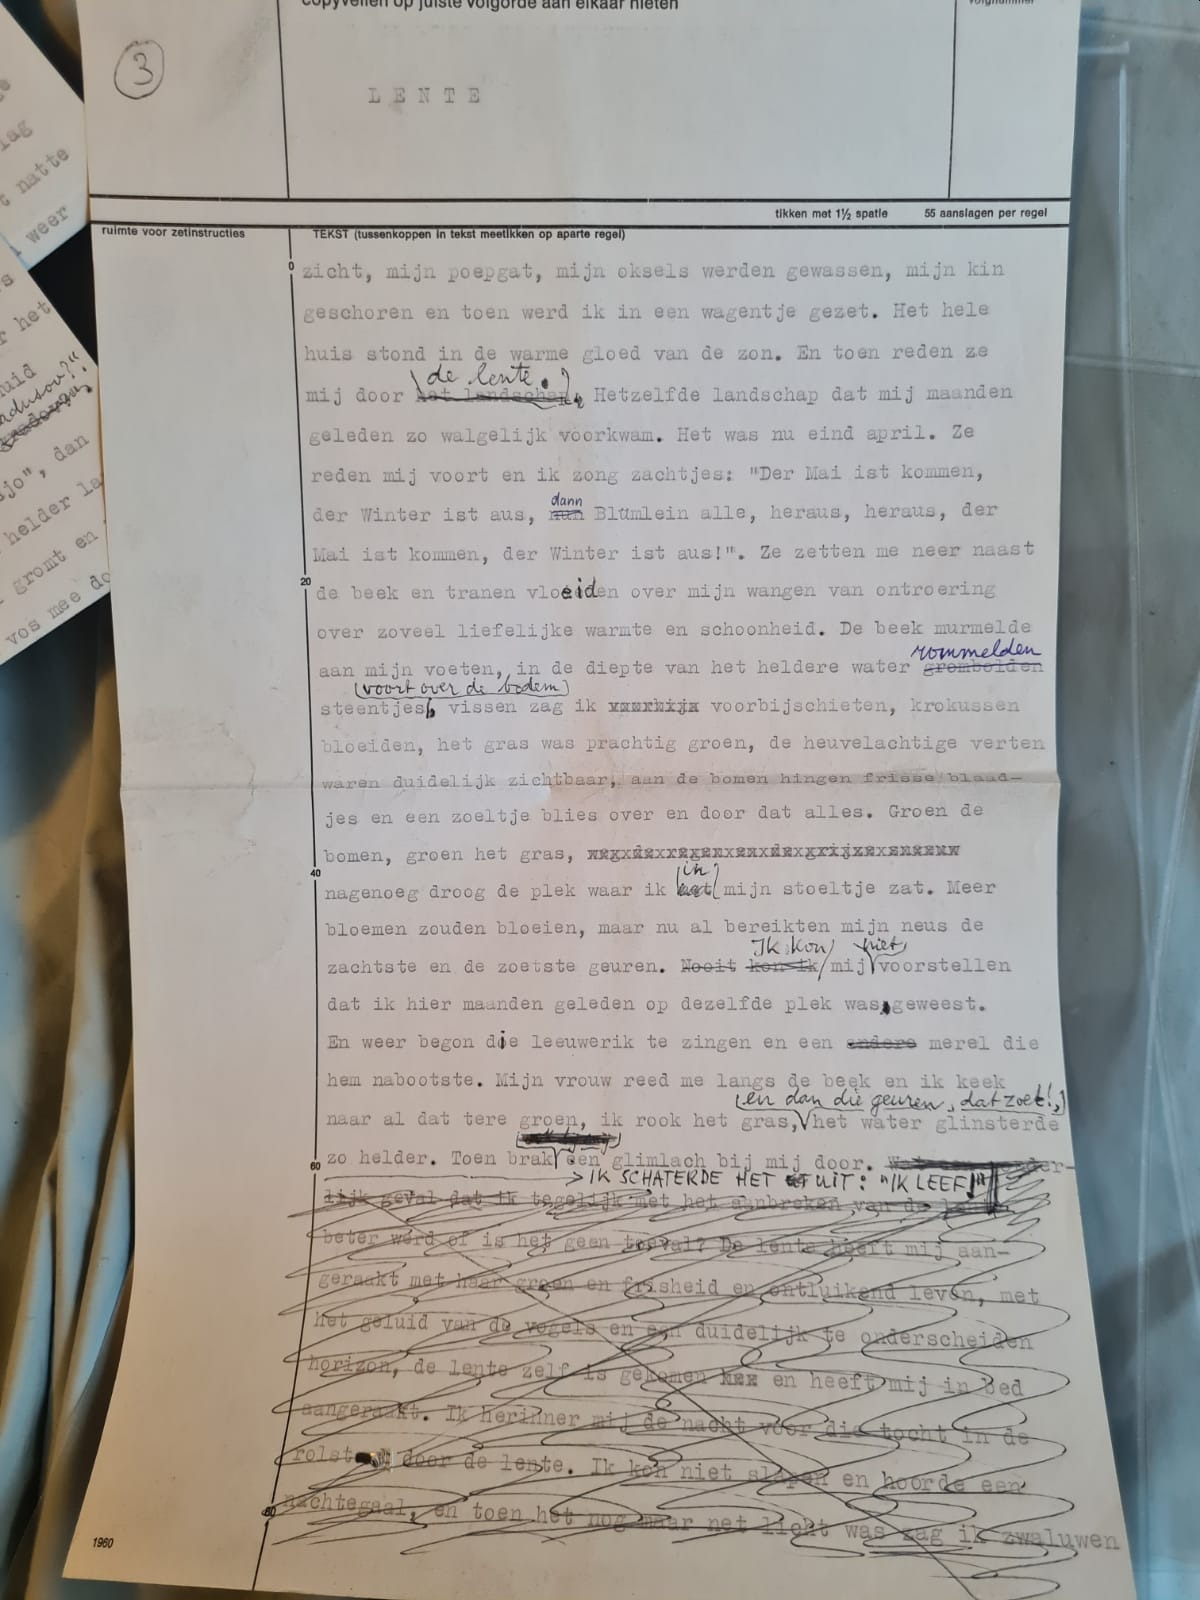 copyvellen op juiste volgorde aan elkaar nieten
volgnummer
3
LENTE
tikken met 1½ spatie 55 aanslagen per regel
ruimte voor zetinstructies
TEKST (tussenkoppen in tekst meetikken op aparte regel)
0
zicht, mijn poepgat, mijn oksels werden gewassen, mijn kin
geschoren en toen werd ik in een wagentje gezet. Het hele
huis stond in de warme gloed van de zon. En toen reden ze
de lente.
mij door het landschap. Hetzelfde landschap dat mij maanden
geleden zo walgelijk voorkwam. Het was nu eind april. Ze
reden mij voort en ik zong zachtjes: "Der Mai ist kommen,
dann
der Winter ist aus, nun Blumlein alle, heraus, heraus, der
Mai ist kommen, der Winter ist aus!". Ze zetten me neer naast
20
de beek en tranen vloeiden over mijn wangen van ontroering
over zoveel liefelijke warmte en schoonheid. De beek murmelde
rommelden
aan mijn voeten, in de diepte van het heldere water grombolden
(voort over de bodem)
steentjes, vissen zag ik voorbijschieten, krokussen
bloeiden, het gras was prachtig groen, de heuvelachtige verten
waren duidelijk zichtbaar, aan de bomen hingen frisse blaad-
jes en een zoeltje blies over en door dat alles. Groen de
bomen, groen het gras,
40
in
nagenoeg droog de plek waar ik met mijn stoeltje zat. Meer
bloemen zouden bloeien, maar nu al bereikten mijn neus de
Ik kon niet
zachtste en de zoetste geuren. Nooit kon ik mij voorstellen
dat ik hier maanden geleden op dezelfde plek was geweest.
En weer begon die leeuwerik te zingen en een andere merel die
hem nabootste. Mijn vrouw reed me langs de beek en ik keek
(en dan die geuren, dat zoet!,)
naar al dat tere groen, ik rook het gras, het water glinsterde
60
zo helder. Toen brak een glimlach bij mij door. der-
> IK SCHATERDE HET UIT: "IK LEEF!"
lijk geval dat ik tegelijk met het aanbreken van de lente
beter werd of is het geen toeval? De lente heeft mij aan-
geraakt met haar groen en frisheid en ontluikend leven, met
het geluid van de vogels en een duidelijk te onderscheiden
horizon, de lente zelf is gekomen en heeft mij in bed
aangeraakt. Ik herinner mij de nacht voor die tocht in de
rolst door de lente. Ik kon niet slapen en hoorde een
80
nachtegaal, en toen het nog maar net licht was zag ik zwaluwen
1960
lag
natte
weer
het
uid
sjo", dan
helder
gromt en
vos mee do